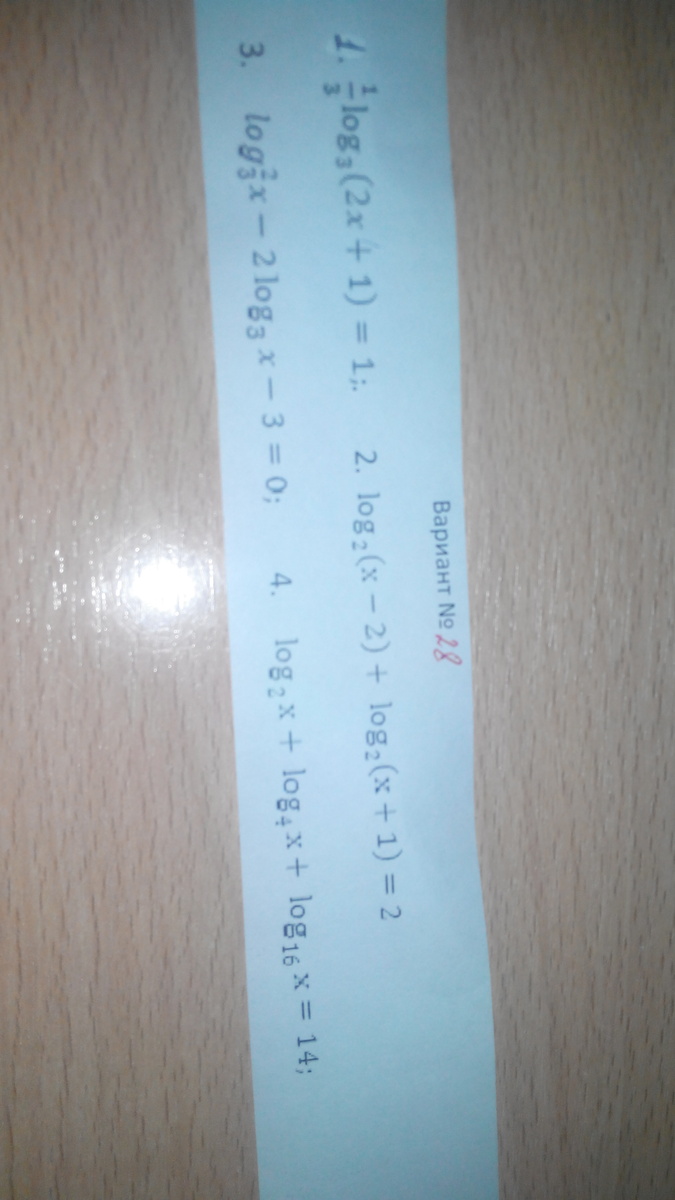 Вариант № 28
1. 1/3 log₃(2x + 1) = 1;. 2. log₂(x − 2) + log₂(x + 1) = 2
3. log₃²x − 2 log₃ x − 3 = 0; 4. log₂x + log₄x + log₁₆ x = 14;